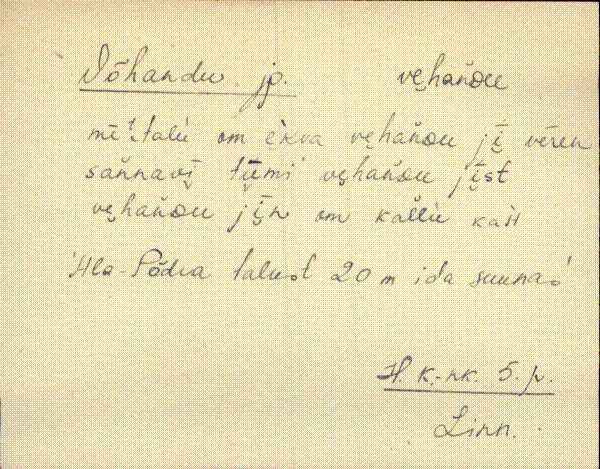 Võhandu jp. vęhańdu
talu om ękva vęhańdu jį vēren
sańnavį tįįmi vęhańdu jįst
vęhańdu jįn om kallu kaĺĺ
Ala-Põdra talust 20 m ida suunas
H. k.-nk. 5. p.
Linn.